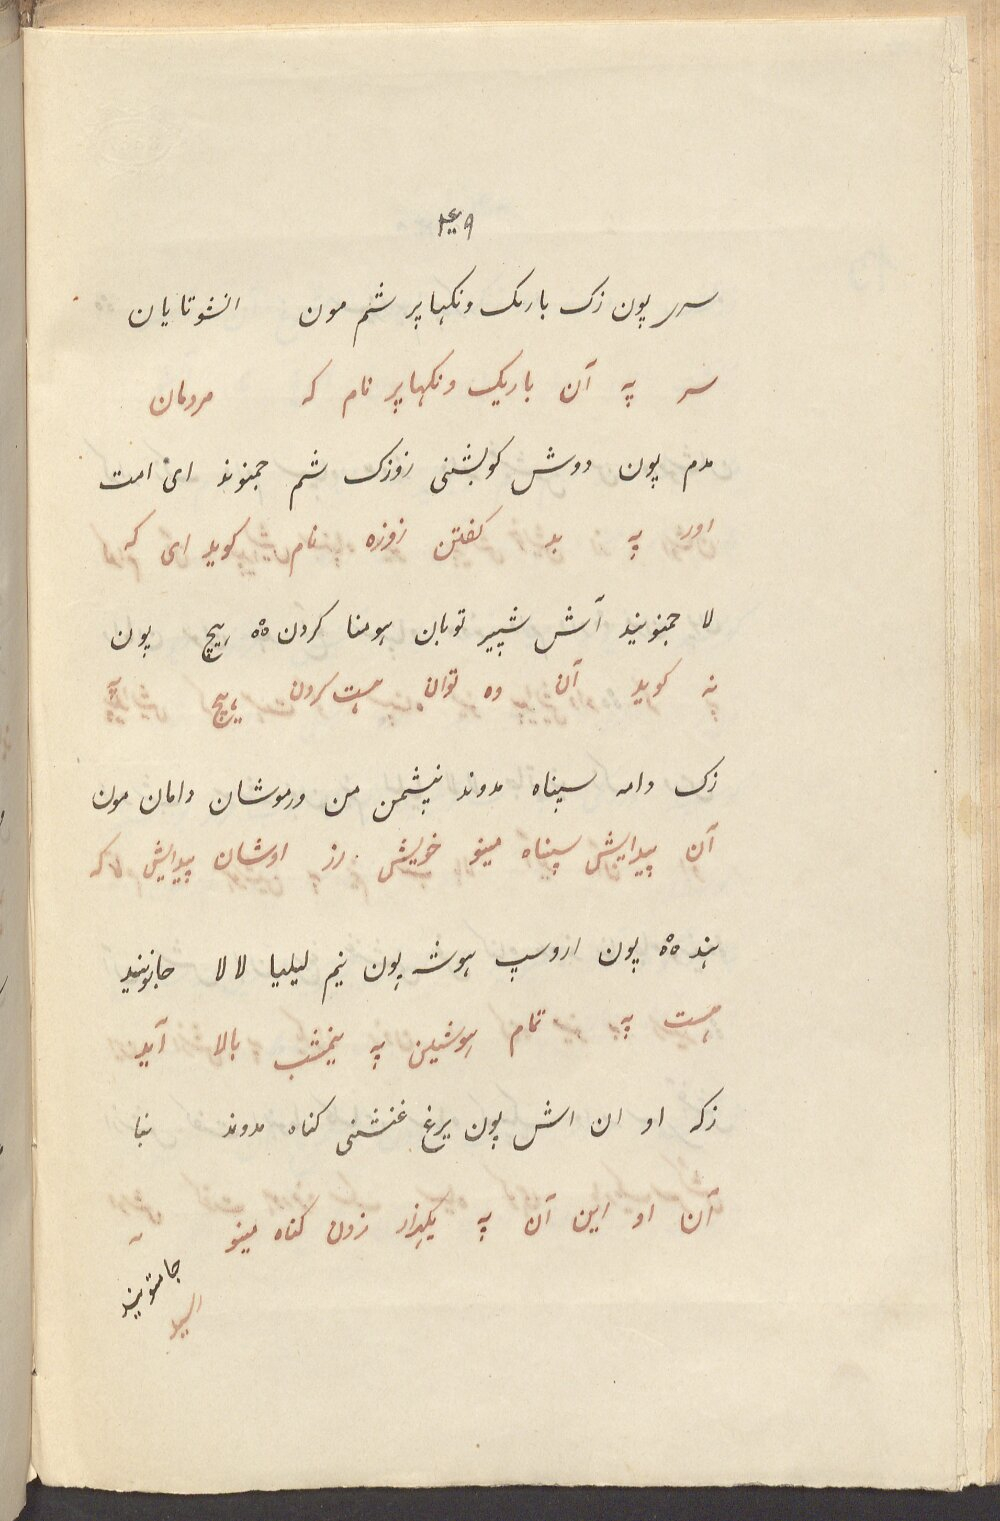 ۴۹
سر پون زک باریک ونکهاپر شم مون انشوتایان
سر په آن باریک ونکهاپر نام که مردمان
مدم پون دوش کوبشنی زوزک شم جمنوند ای امت
اور په بد کفتن زوزه نام کوید ای که
لا جمنونید آش شپیر توبان هومنا کردن هیچ پون
نه کوید آن وه توان هست کردن هیچ په
زک دامه سپناه مدوند نپشمن من ورموشان دامان مون
آن پیدایش سپناه مینو خویش رز اوشان پیدایش که
هند پون اروسپ هوشه پون نیم لیلیا لالا جانونید
هست په تمام هوشیدن په نیمشب بالا آید
زکه او ان اش پون یرغ غنشنی کناه مدوند نبا
آن او این آن په یکهزار زدن کناه مینو نه
جاستونید